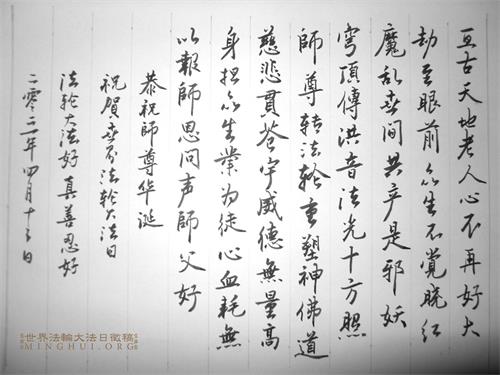 亘古天地老人心不再好大
劫至眼前众生不觉晓红
魔乱世间共产是邪妖
穹顶傳洪音法光十方照
師尊转法轮重塑神佛道
慈悲贯苍宇威德無量高
身担众生業为徒心血耗無
以報師恩问声師父好
恭祝師尊华诞
祝賀世界法轮大法日
法轮大法好真善忍好
二零二二年四月十三日
世界法輪大法日徵稿
MINGHUI.ORG